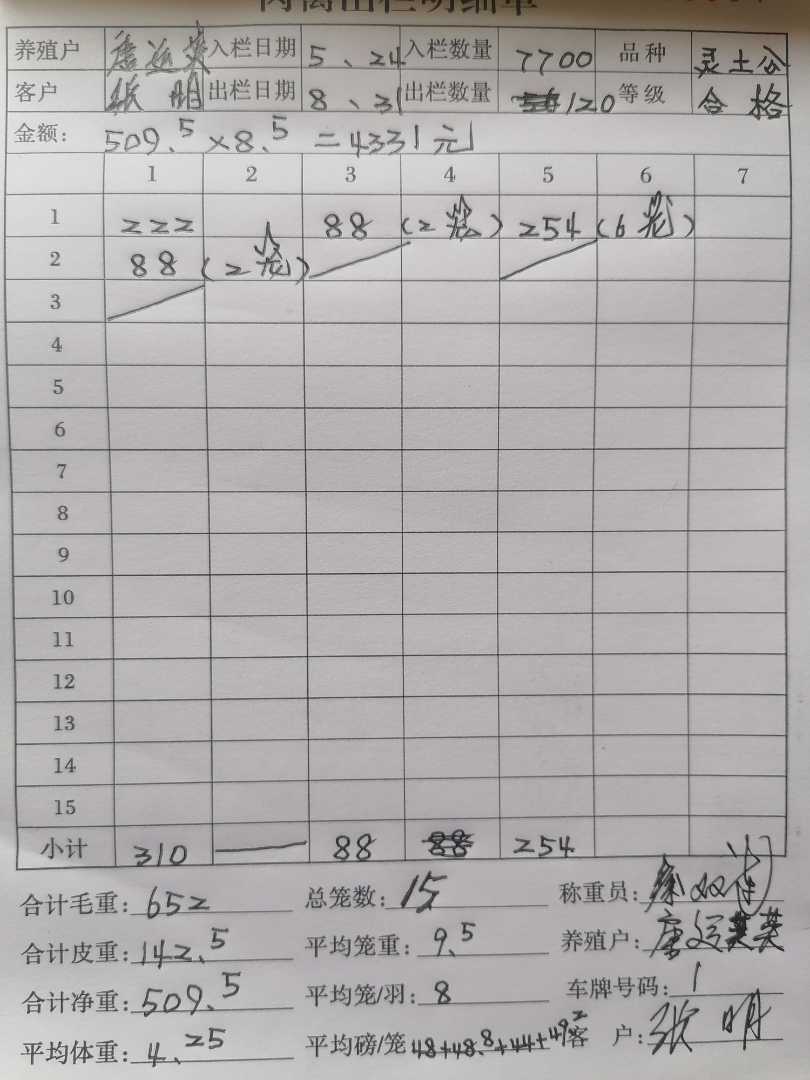 肉禽出栏明细单
养殖户 唐运英 入栏日期 5、24 入栏数量 7700 品种 灵土公
客户 张明 出栏日期 8、31 出栏数量 120 等级 合格
金额: 509.5×8.5=4331元
1 2 3 4 5 6 7
1 222 88 (2笼) 254 (6笼)
2 88 (2笼)
3
4
5
6
7
8
9
10
11
12
13
14
15
小计 310 88 88 254
合计毛重: 652 总笼数: 15 称重员:
合计皮重: 142.5 平均笼重: 9.5 养殖户: 唐运英
合计净重: 509.5 平均笼/羽: 8 车牌号码: 1
平均体重: 4、25 平均磅/笼 48+48.8+44+49.2 客户: 张明